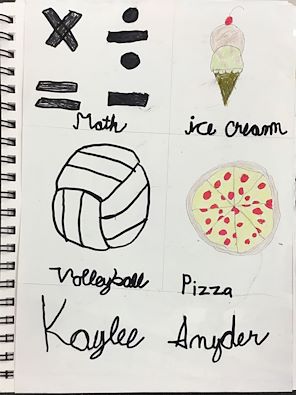 Math ice cream
Volleyball Pizza
Kaylee Snyder